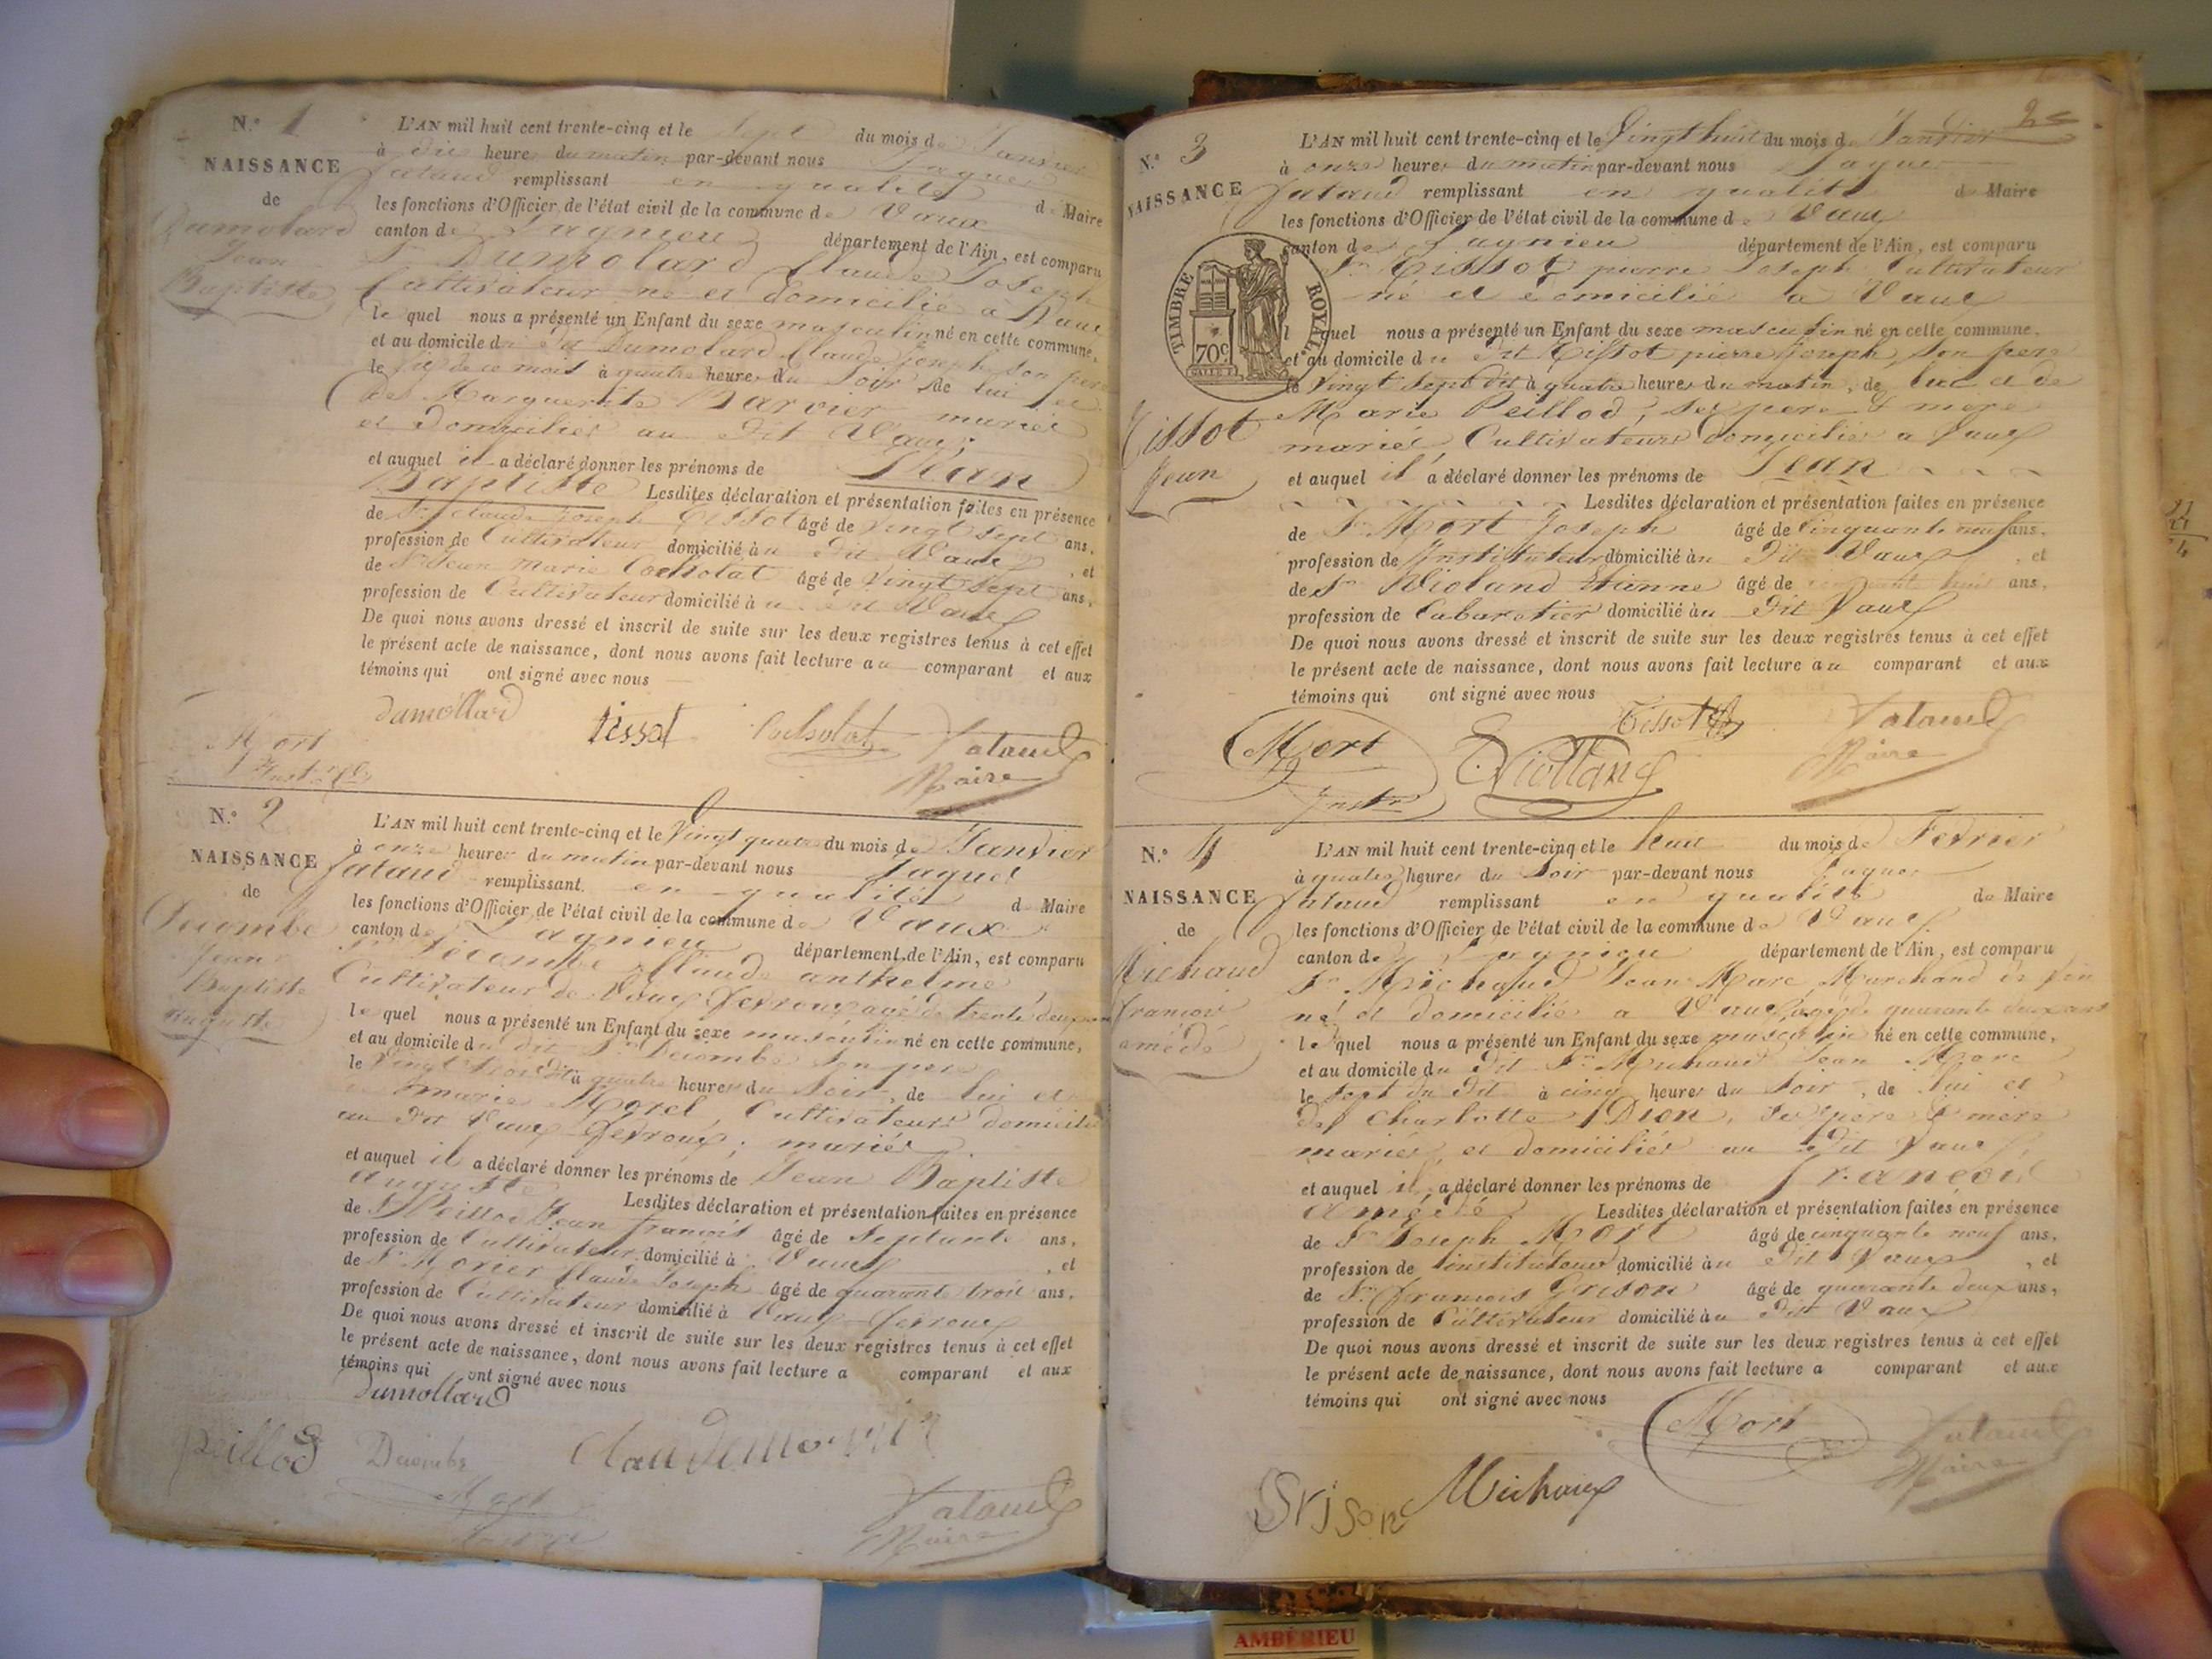 N.° 1
NAISSANCE
de
Dumolard
Jean
Baptiste
L'AN mil huit cent trente-cinq et le sept du mois de Janvier
à dix heures du matin par-devant nous Jaques
Jataud remplissant en qualité de Maire
les fonctions d'Officier de l'état civil de la commune de Vaux
canton de Lagnieu département de l'Ain, est comparu
Sr Dumolard Claude Joseph
Cultivateur né et domicilié à Vaux
lequel nous a présenté un Enfant du sexe masculin né en cette commune,
et au domicile du dit Dumolard Claude Joseph son père
le six de ce mois à quatre heures du soir, de lui et
de Marguerite Barvier mariés
et domiciliés au dit Vaux;
et auquel il a déclaré donner les prénoms de Jean
Baptiste Lesdites déclaration et présentation faites en présence
de Sr Claude Joseph Tissot âgé de vingt sept ans,
profession de Cultivateur domicilié à u dit Vaux, et
de Sr Jean Marie Cocholat âgé de vingt sept ans,
profession de Cultivateur domicilié à u dit Vaux
De quoi nous avons dressé et inscrit de suite sur les deux registres tenus à cet effet
le présent acte de naissance, dont nous avons fait lecture au comparant et aux
témoins qui ont signé avec nous
dumollard tissot Jataud
Maire
Mort
Instr
N.° 2
NAISSANCE
de
Decombe
Jean
Baptiste
Auguste
L'AN mil huit cent trente-cinq et le vingt quatre du mois de Janvier
à onze heures du matin par-devant nous Jaques
Jataud remplissant en qualité de Maire
les fonctions d'Officier de l'état civil de la commune de Vaux
canton de Lagnieu département de l'Ain, est comparu
Sr Decombe Claude anthelme
Cultivateur de Vaux fevroux agé de trente deux ans
lequel nous a présenté un Enfant du sexe masculin né en cette commune,
et au domicile du dit Sr Decombe son père
le vingt trois dit à quatre heures du soir, de lui et
de marie Morel Cultivateurs domiciliés
au dit Vaux fevroux; mariés
et auquel il a déclaré donner les prénoms de Jean Baptiste
auguste Lesdites déclaration et présentation faites en présence
de Sr Peillod Jean françois âgé de septante ans,
profession de Cultivateur domicilié à Vaux, et
de Sr Morier Claude Joseph âgé de quarante trois ans,
profession de Cultivateur domicilié à Vaux fevroux
De quoi nous avons dressé et inscrit de suite sur les deux registres tenus à cet effet
le présent acte de naissance, dont nous avons fait lecture a comparant et aux
témoins qui ont signé avec nous
Dumollard
peillod Decombe
Mort
Jataud
Maire
2
N.° 3
NAISSANCE
TIMBRE ROYAL
70c
Tissot
Jean
L'AN mil huit cent trente-cinq et le vingt huit du mois de Janvier
à onze heures du matin par-devant nous Jaques
Jataud remplissant en qualité de Maire
les fonctions d'Officier de l'état civil de la commune de Vaux
canton de Lagnieu département de l'Ain, est comparu
Sr Tissot pierre Joseph Cultivateur
né et domicilié à Vaux
l quel nous a présenté un Enfant du sexe masculin né en cette commune,
et au domicile du dit Tissot pierre Joseph, son père
le vingt sept dit à quatre heures du matin, de lui et de
Marie Peillod; ses père & mère
mariés, Cultivateurs domiciliés à Vaux
et auquel il a déclaré donner les prénoms de Jean
Lesdites déclaration et présentation faites en présence
de Sr Mort Joseph âgé de cinquante neuf ans,
profession de Instituteur domicilié à u dit Vaux, et
de Sr Violand Etienne âgé de huit ans,
profession de Cabaretier domicilié à u dit Vaux
De quoi nous avons dressé et inscrit de suite sur les deux registres tenus à cet effet
le présent acte de naissance, dont nous avons fait lecture au comparant et aux
témoins qui ont signé avec nous
Mort
Instr
E. Violland
Tissot
Jataud
Maire
N.° 4
NAISSANCE
de
Michaud
françois
amédé
L'AN mil huit cent trente-cinq et le huit du mois de Fevrier
à quatre heures du soir par-devant nous Jaques
Jataud remplissant en qualité de Maire
les fonctions d'Officier de l'état civil de la commune de Vaux
canton de Lagnieu département de l'Ain, est comparu
Sr Michaud Jean Marc Marchand de vin
né et domicilié à Vaux, agé de quarante deux ans
lequel nous a présenté un Enfant du sexe masculin né en cette commune,
et au domicile du dit Sr Michaud Jean Marc
le sept du dit à cinq heures du soir, de lui et
de Charlotte Dion, ses père & mère
mariés, et domiciliés au dit Vaux,
et auquel il a déclaré donner les prénoms de françois
amédé Lesdites déclaration et présentation faites en présence
de Sr Joseph Mort âgé de cinquante neuf ans,
profession de instituteur domicilié à u dit Vaux, et
de Sr françois Grison âgé de quarante deux ans,
profession de Cultivateur domicilié à u dit Vaux
De quoi nous avons dressé et inscrit de suite sur les deux registres tenus à cet effet
le présent acte de naissance, dont nous avons fait lecture a comparant et aux
témoins qui ont signé avec nous
Mort
Jataud
Maire
Grison Michaud
AMBÉRIEU